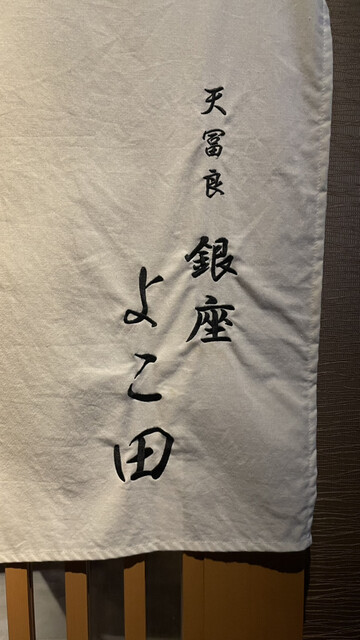 天冨良
銀座
よこ田